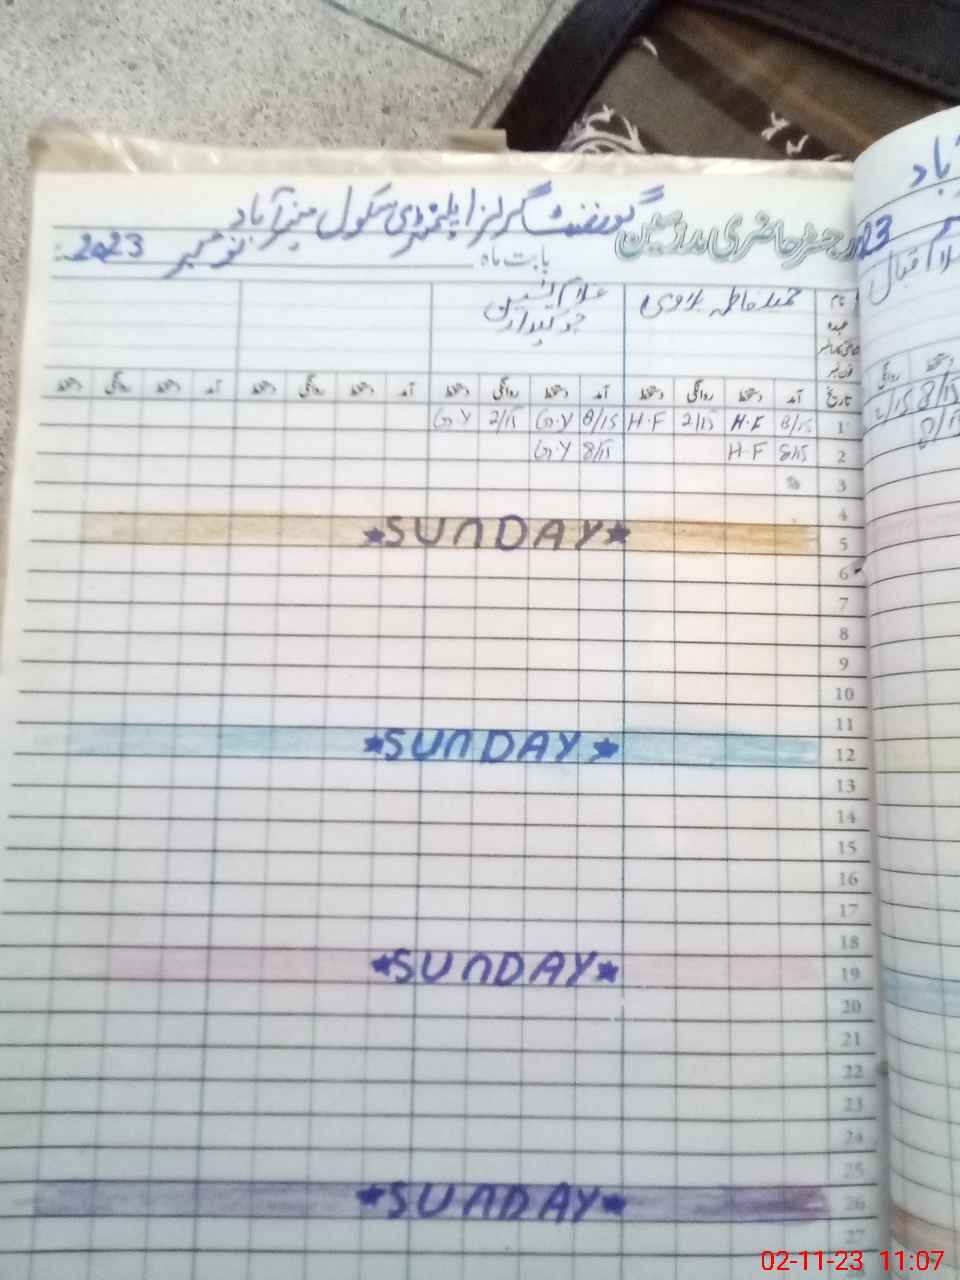 گورنمنٹ گرلز ایلیمنٹری سکول میر آباد
رجسٹر حاضری مدرسین
بابت ماہ نومبر 2023
نام حمید فاطمہ غلام یٰسین
عہدہ چوکیدار
تاریخ آمد دستخط روانگی دستخط آمد دستخط روانگی دستخط آمد دستخط روانگی دستخط آمد دستخط روانگی دستخط
1 8/15 H.F 2/15 H.F 8/15 G.Y 2/15 G.Y
2 8/15 H.F 8/15 G.Y
3 8
4
5 ★SUNDAY★
6
7
8
9
10
11
12 ★SUNDAY★
13
14
15
16
17
18
19 ★SUNDAY★
20
21
22
23
24
25
26 ★SUNDAY★
27
باد
23
غلام اقبال
روانگی دستخط
2/15 8/15
8/15
02-11-23 11:07